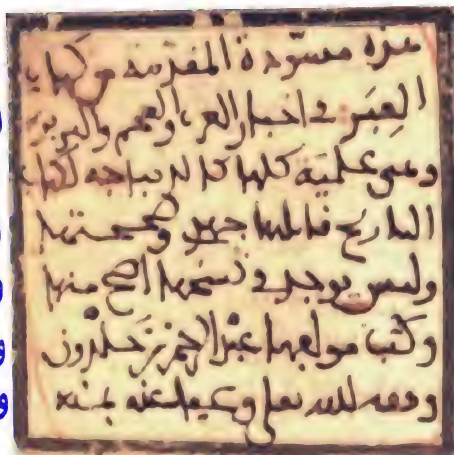 هذه مسودة المقدمة من كتاب
العِبَر في اخبار العرب والعجم والبربر
وهي علمية كلها كالديباجه لكتاب
التاريخ قابلتها جهدي وصححتها
وليس يوجد في نسخها اصح منها
وكتب مولفها عبد الرحمن بن خلدون
وفقه الله تعلى وعفا عنه بمنه